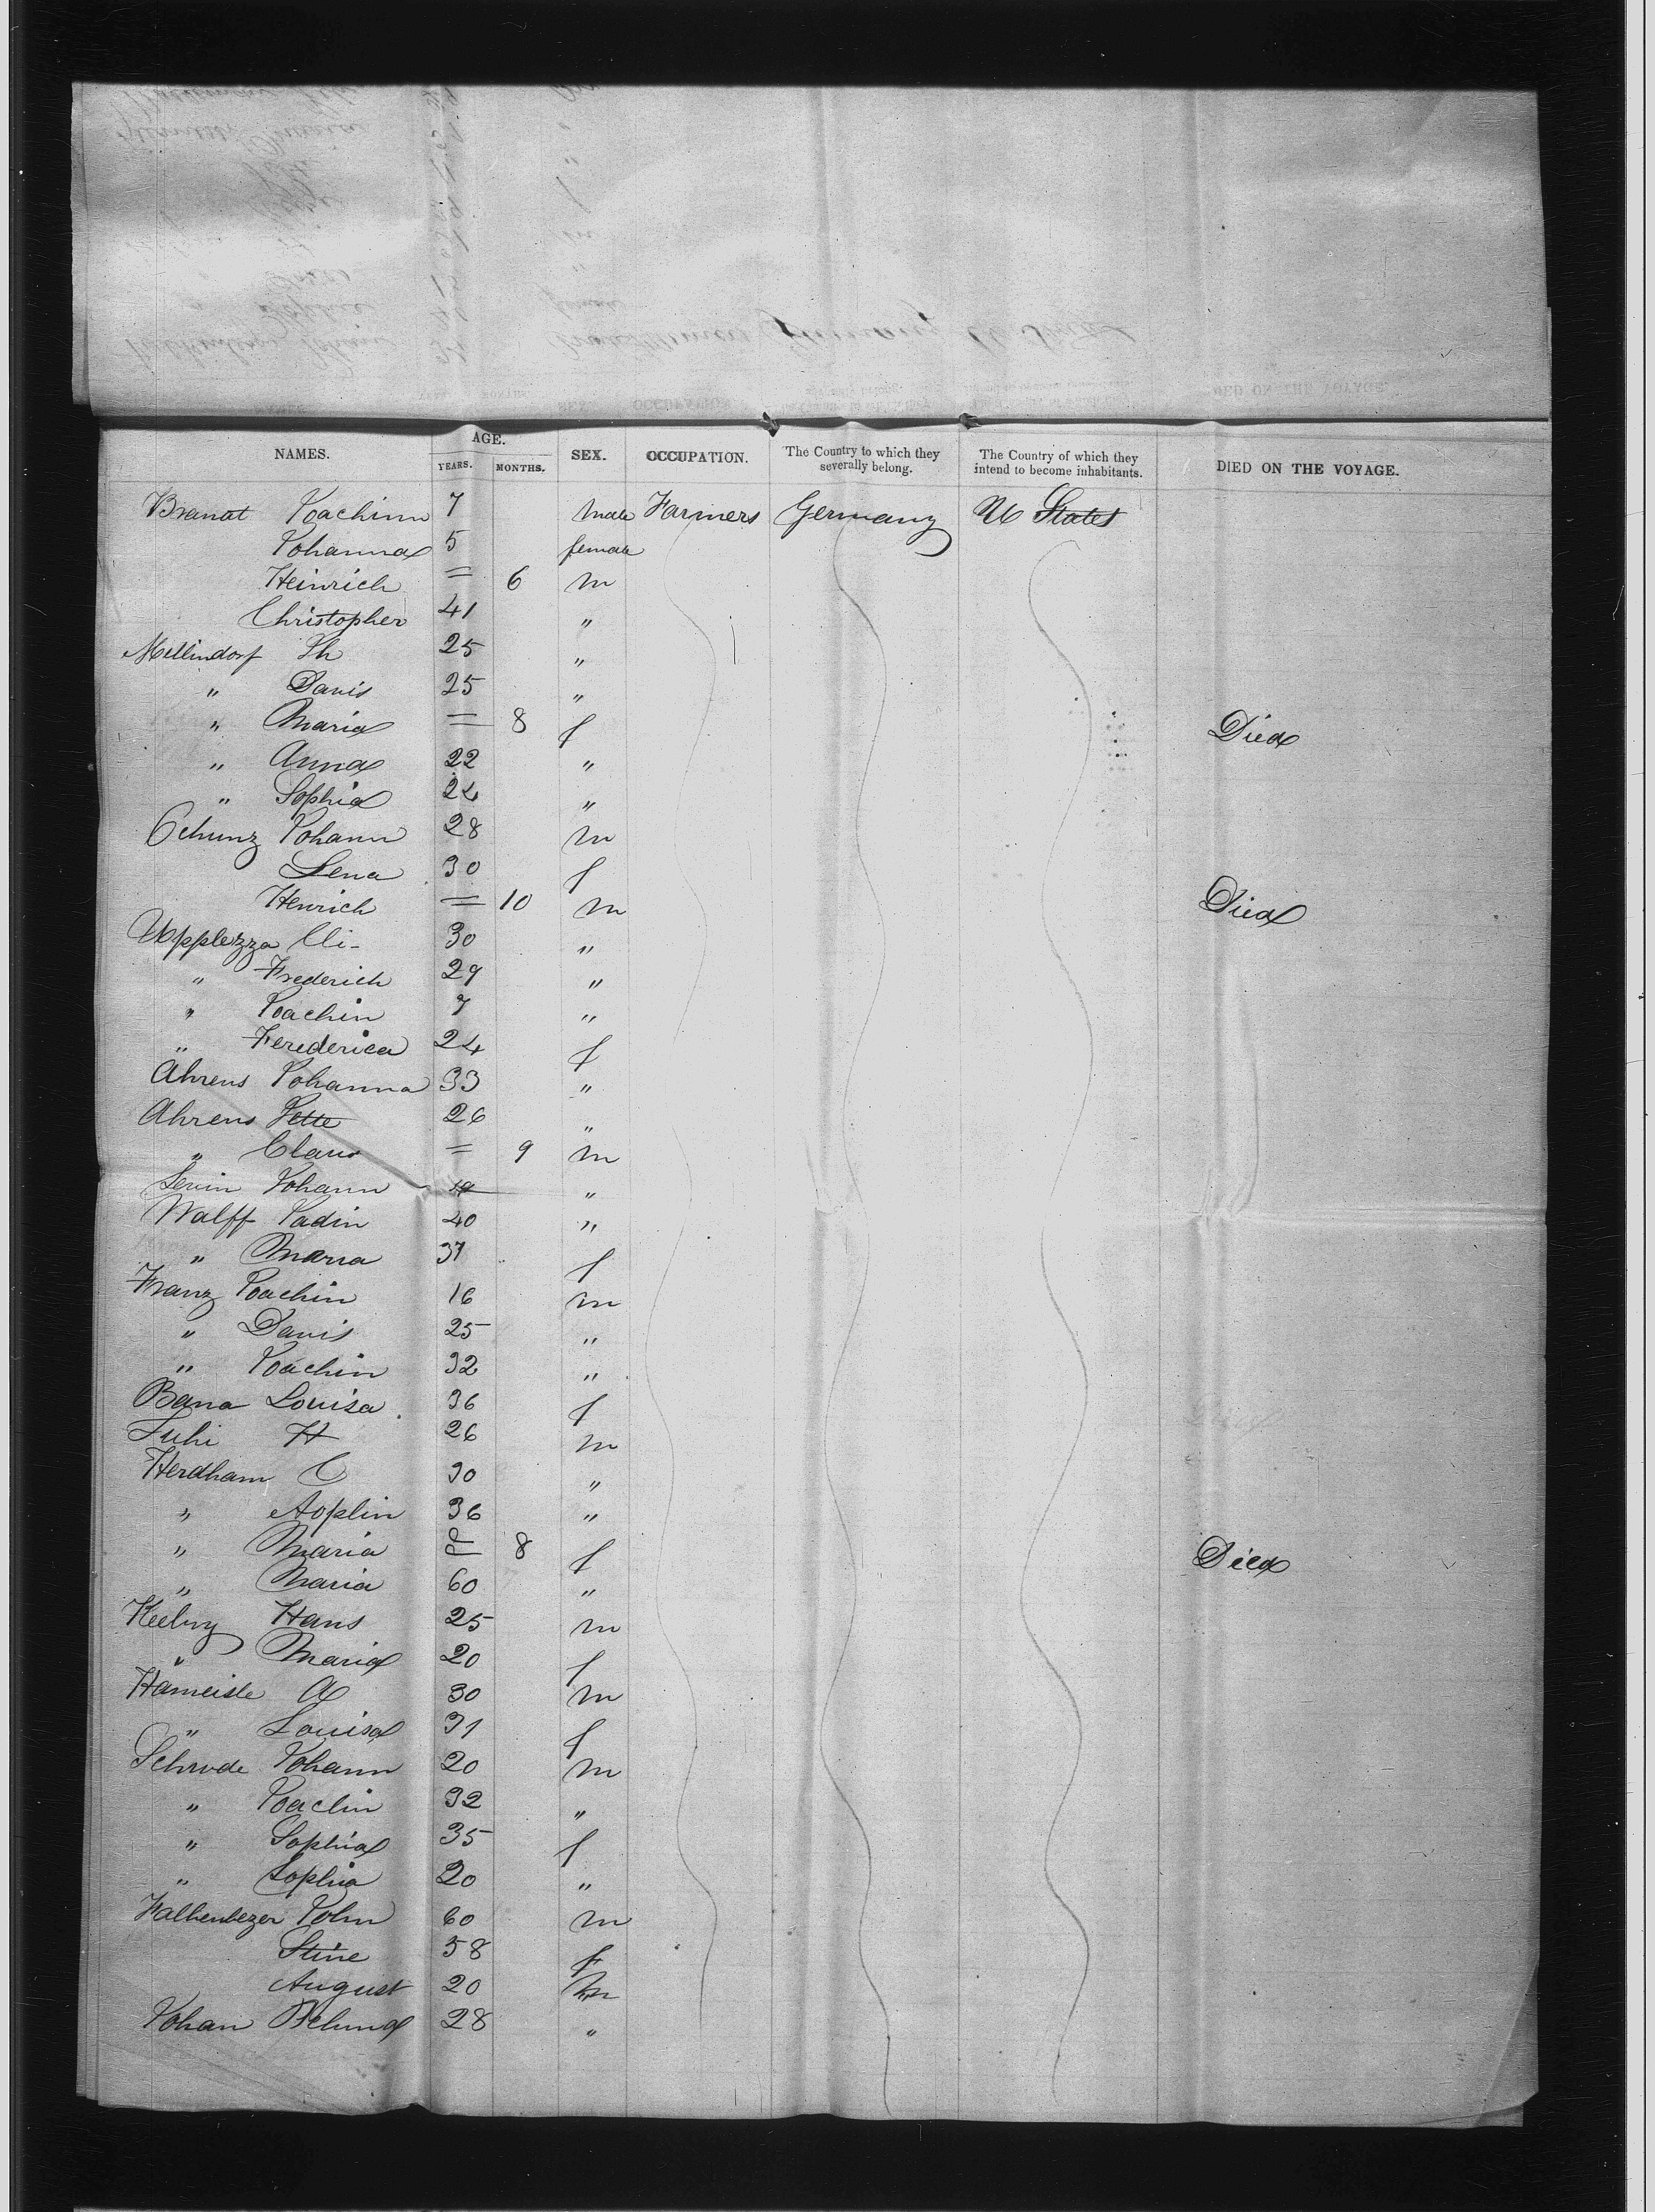 NAMES. AGE. YEARS. MONTHS. SEX. OCCUPATION. The Country to which they severally belong. The Country of which they intend to become inhabitants. DIED ON THE VOYAGE.
Brandt Joachim 7 Male Farmers Germany U States
Johanna 5 female
Heinrich = 6 m
Christopher 41 "
Mellindorf Th 25 "
" Davis 25 "
" Maria = 8 f Died
" Anna 22 "
" Sophia 24 "
Johann 28 m
Lena 30 f
Henrich = 10 m Died
30 "
" Frederich 29 "
" Joachin 7 "
" Ferederica 24 f
Ahrens Johanna 33 "
Ahrens Jette 26 "
" Claus = 9 m
Levin Johann "
Walff Jadin 40 "
" Maria 37 f
Franz Joachin 16 m
" Davis 25 "
" Joachin 32 "
Bana Louisa 36 f
H 26 m
Herdham C 30 "
" 36 "
" Maria = 8 f Died
" Maria 60 "
Hans 25 m
" Maria 20 f
Hameisle A 30 m
" Louisa 31 f
Schrode Johann 20 m
" Joachin 32 "
" Sophia 35 f
" Sophia 20 "
John 60 m
Stine 58 f
August 20 m
Johan 28 "